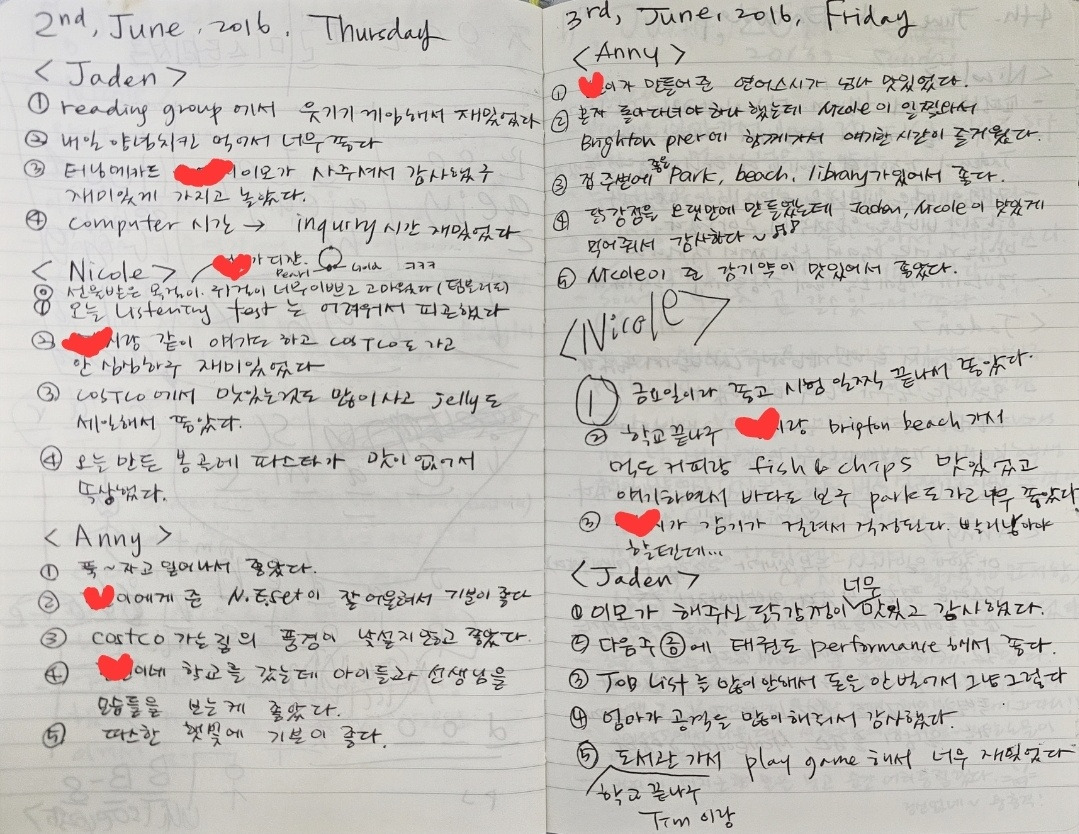 2nd, June, 2016. Thursday
< Jaden >
① reading group 에서 웃기기 게임해서 재밌었다
② 내일 양념치킨 먹어서 너무 좋다
③ 터닝메카드 이모가 사주셔서 감사했구
재미있게 가지고 놀았다.
④ computer 시간 → inquiry 시간 재밌었다
< Nicole > 가 디잔. Pearl Gold ㅋㅋㅋ
⓪ 선물받은 목걸이. 귀걸이 너무이쁘고 고마웠다
① 오늘 Listening test 는 어려워서 피곤했다
② 랑 같이 얘기도 하고 COSTCO도 가고
안 심심하구 재미있었다
③ COSTCO 에서 맛있는것도 많이사고 jelly도
세일해서 좋았다.
④ 오늘 만든 봉골레 파스타가 맛이 없어서
속상했다.
< Anny >
① 푹~자고 일어나서 좋았다.
② 이에게 준 N.E.set이 잘 어울려서 기분이 좋다
③ costco 가는길의 풍경이 낯설지않고 좋았다.
④ 이네 학교를 갔는데 아이들과 선생님을
모습들을 보는게 좋았다.
⑤ 따스한 햇빛에 기분이 좋다.
3rd, June, 2016. Friday
< Anny >
① 이가 만들어 준 연어스시가 넘나 맛있었다.
② 혼자 돌아다녀야 하나 했는데 Nicole이 일찍와서
Brighton pier에 함께가서 얘기한 시간이 즐거웠다.
③ 집 주변에 좋은 Park, beach, library가 있어서 좋다.
④ 닭강정을 오랫만에 만들었는데 Jaden, Nicole이 맛있게
먹어줘서 감사하다~
⑤ Nicole이 준 감기약이 맛있어서 좋았다.
<Nicole>
① 금요일이라 좋고 시험 일찍 끝나서 좋았다.
② 학교 끝나구 랑 bripton beach 가서
먹은 커피랑 fish & chips 맛있었고
얘기하면서 바다도 보구 park도 가고 너무 좋았다
③ 가 감기가 걸려서 걱정된다. 빨리 나아야
할텐데...
< Jaden >
① 이모가 해주신 닭강정이 너무 맛있고 감사했다.
② 다음주 금에 태권도 performance 해서 좋다.
③ Job List를 많이 안해서 돈을 안 벌어서 그냥그렇다
④ 엄마가 공격을 많이해줘서 감사했다.
⑤ 도서관 가서 play game 해서 너무 재밌었다
학교 끝나구
Tim 이랑